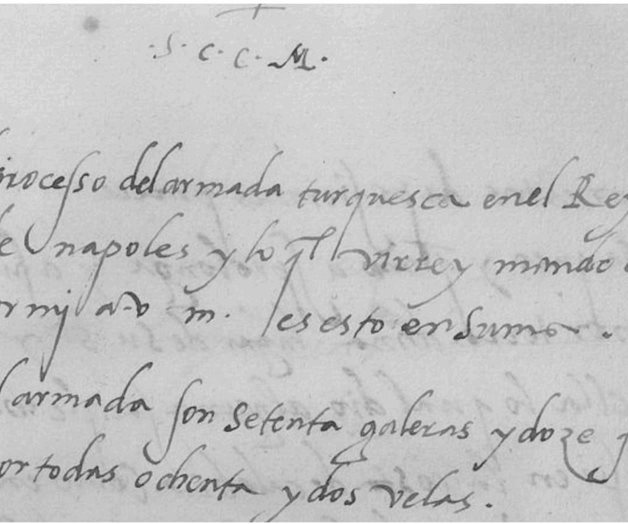 .S. C. C. M.
processo delarmada turquesca enel Rey
de napoles y lo ql virrey mando
por mj a v m. es esto en suma.
armada son setenta galeras y doze
por todas ochenta y dos velas.